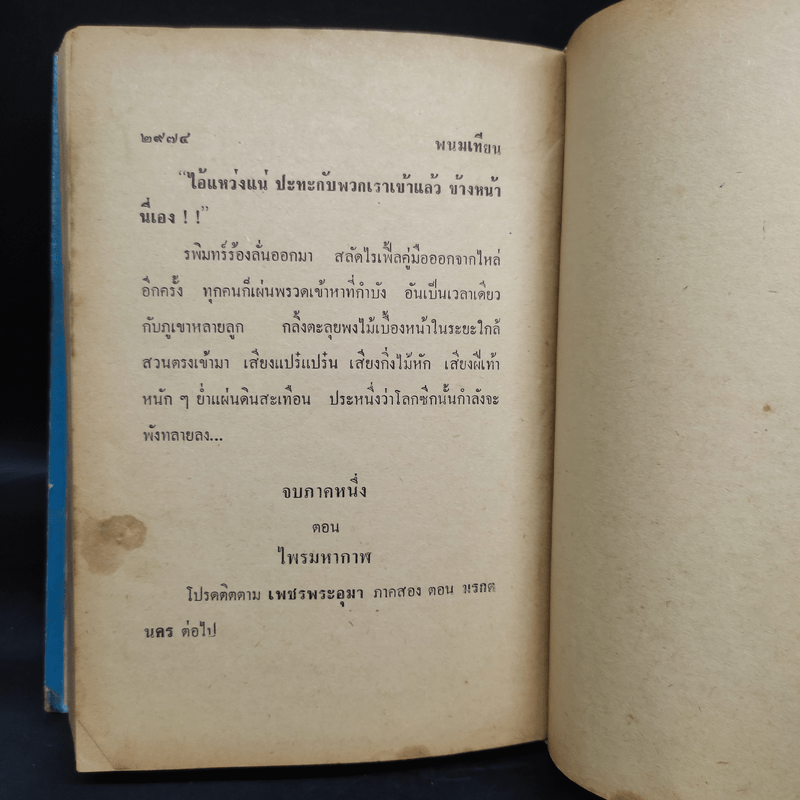 ๒๙๗๔ พนมเทียน
"ไอ้แหว่งแน่ ปะทะกับพวกเราเข้าแล้ว ข้างหน้า
นี่เอง ! !"
รพินทร์ร้องลั่นออกมา สลัดไรเฟิ้ลคู่มือออกจากไหล่
อีกครั้ง ทุกคนก็เผ่นพรวดเข้าหาที่กำบัง อันเป็นเวลาเดียว
กับภูเขาหลายลูก กลิ้งตะลุยพงไม้เบื้องหน้าในระยะใกล้
สวนตรงเข้ามา เสียงแปร๋แปร๋น เสียงกิ่งไม้หัก เสียงฝีเท้า
หนัก ๆ ย่ำแผ่นดินสะเทือน ประหนึ่งว่าโลกซีกนั้นกำลังจะ
พังทลายลง...
จบภาคหนึ่ง
ตอน
ไพรมหากาฬ
โปรดติดตาม เพชรพระอุมา ภาคสอง ตอน มรกต
นคร ต่อไป